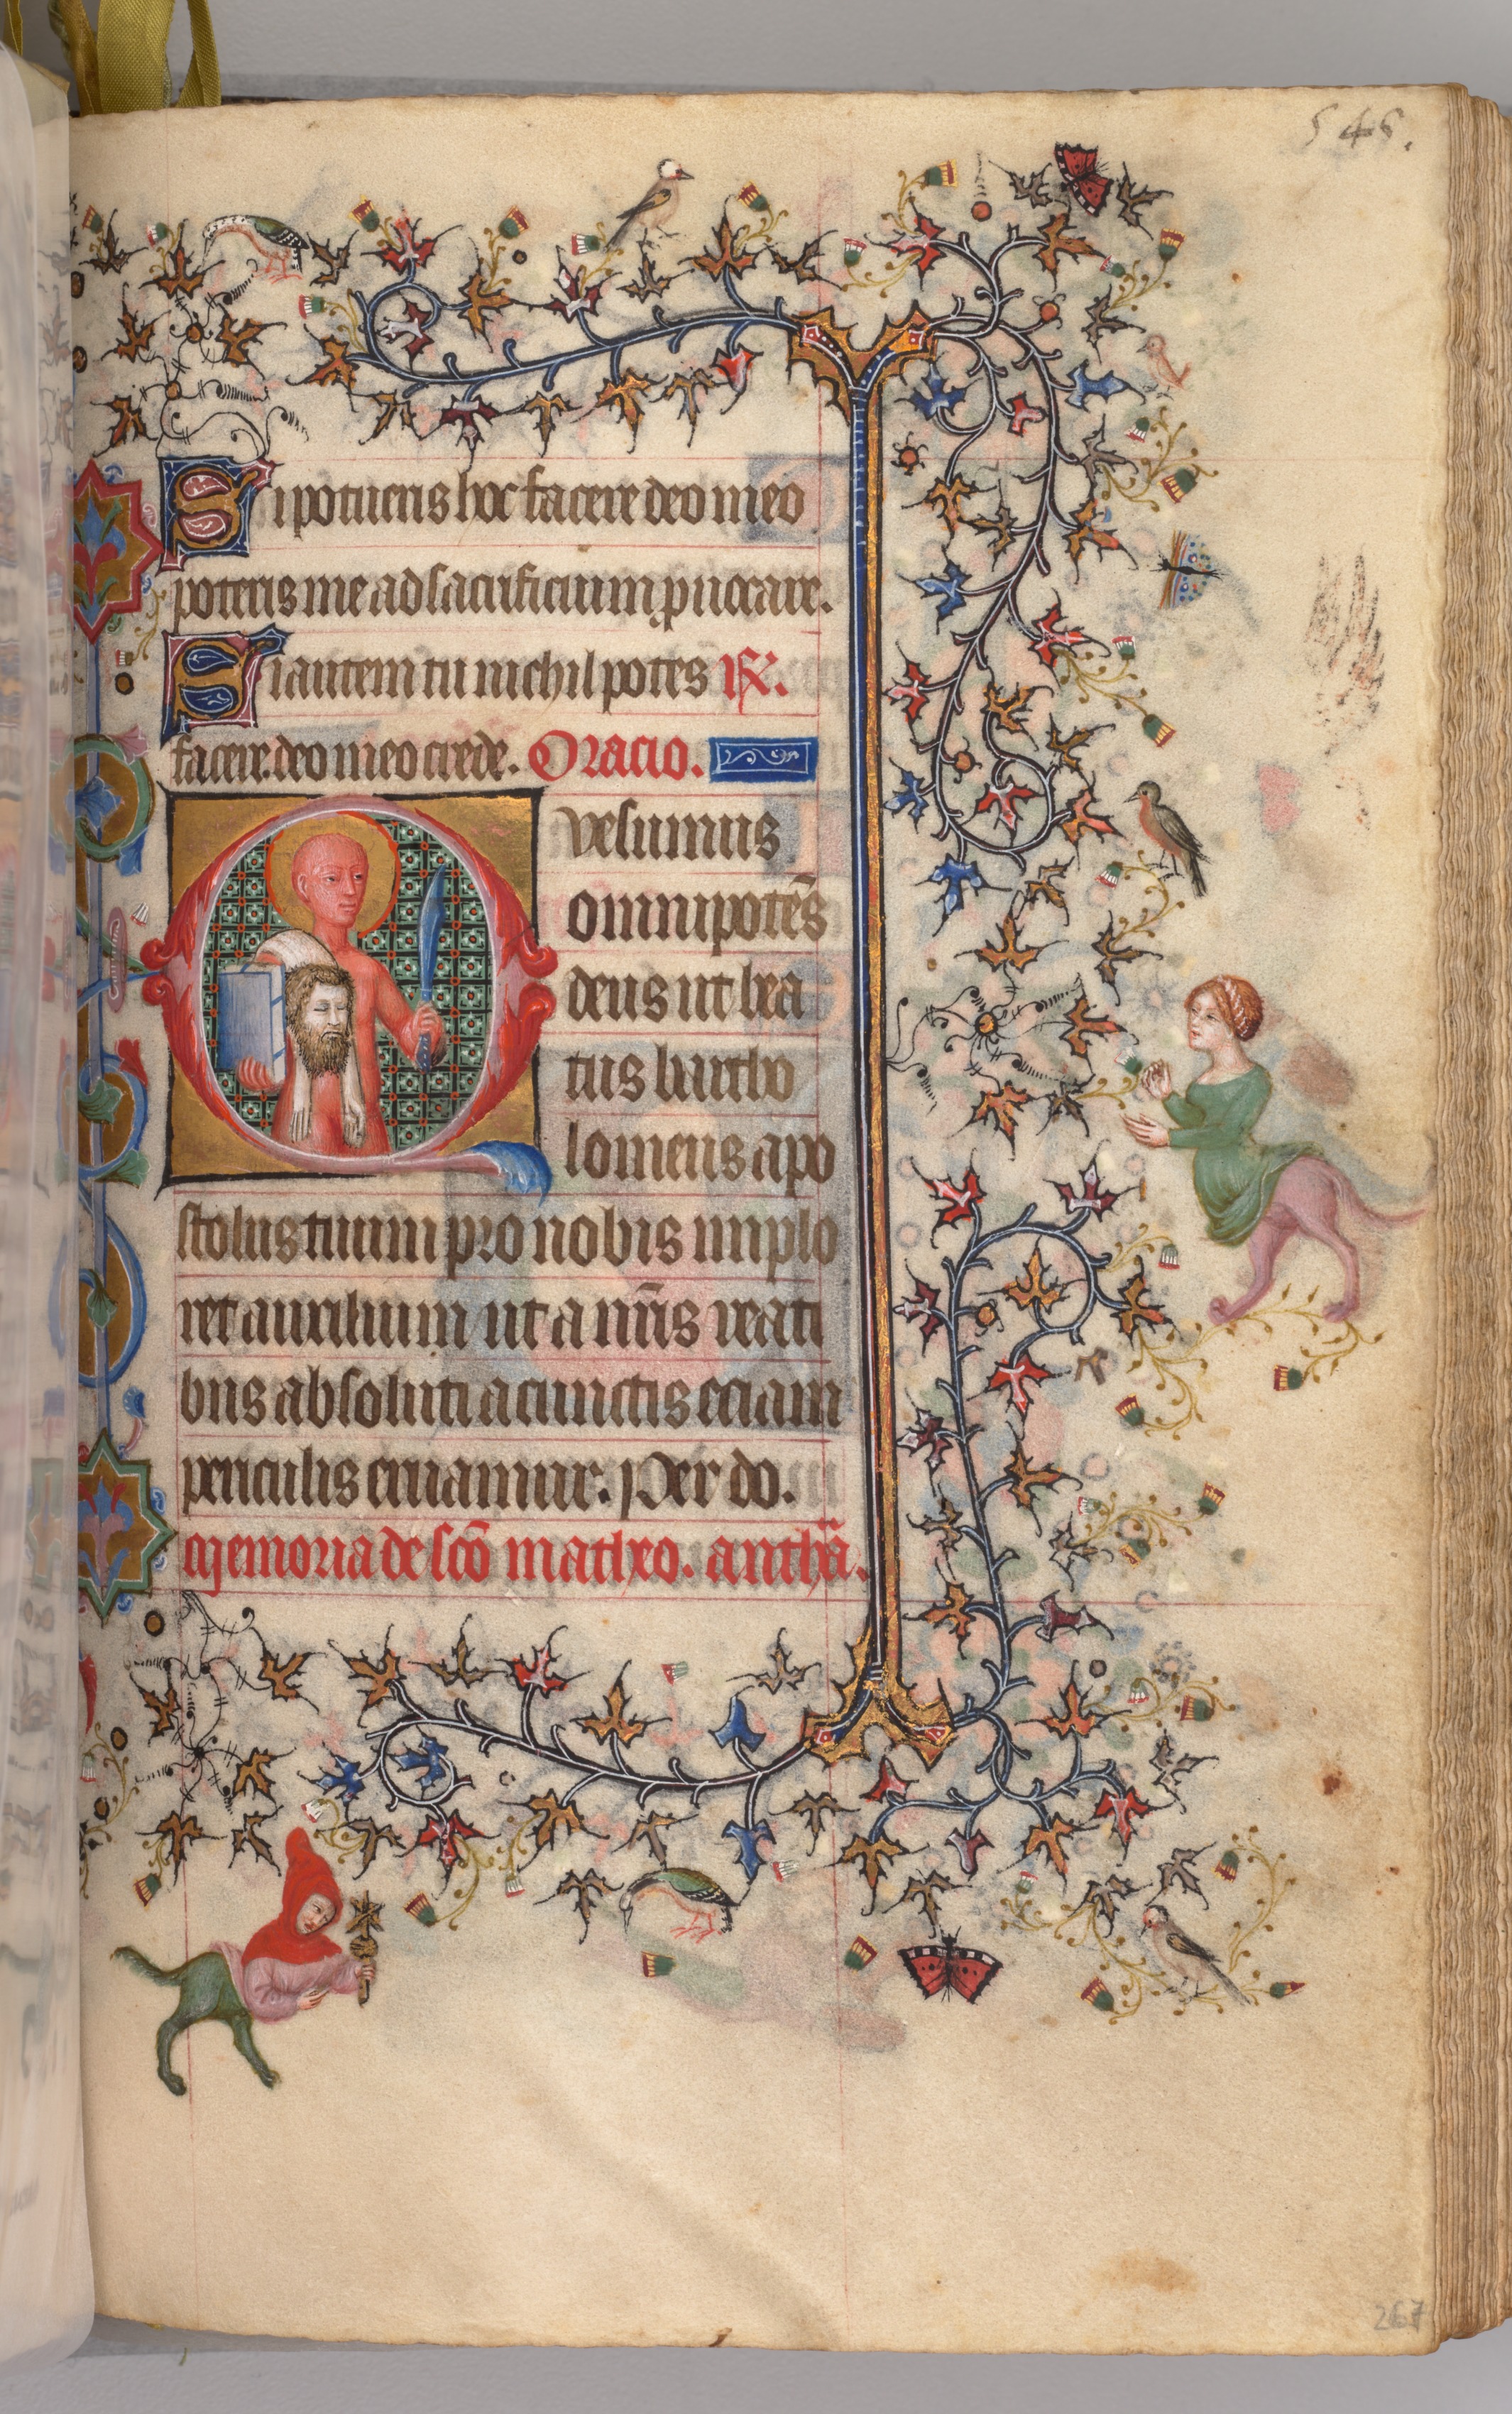 545.
Si potueris hoc facere deo meo
poteris me ad sacrificium puocare.
Si autem tu nichil potes
facere. deo meo crede. Oracio.
Quesumus
omnipotēs
deus ut bea
tus bartho
lomeus apo
stolus tuum pro nobis implo
ret auxilium ut a nr̄is reati
bus absoluti a cunctis eciam
periculis eruamur. Per do.
Memoria de sc̄o matheo. anthā.
267